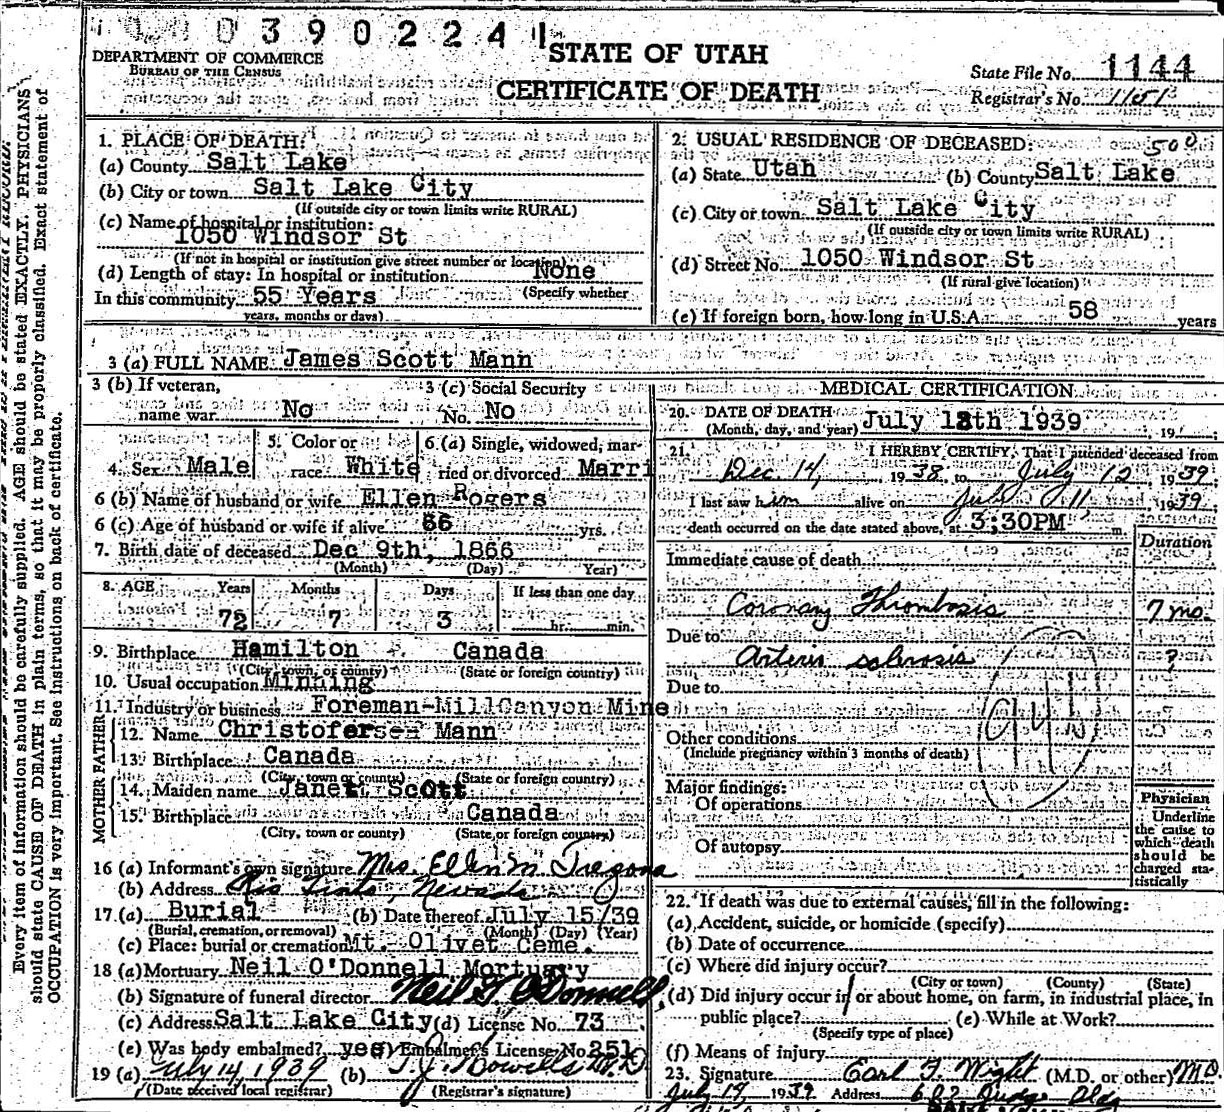 0390224
STATE OF UTAH
CERTIFICATE OF DEATH
DEPARTMENT OF COMMERCE
BUREAU OF THE CENSUS
State File No. 1144
Registrar's No. 1151
Every item of information should be carefully supplied. AGE should be stated EXACTLY. PHYSICIANS
should state CAUSE OF DEATH in plain terms, so that it may be properly classified. Exact statement of
OCCUPATION is very important. See instructions on back of certificate.
1. PLACE OF DEATH:
(a) County Salt Lake
(b) City or town Salt Lake City
(If outside city or town limits write RURAL)
(c) Name of hospital or institution:
1050 Windsor St
(If not in hospital or institution give street number or location)
(d) Length of stay: In hospital or institution None
(Specify whether
In this community 55 Years
years, months or days)
2. USUAL RESIDENCE OF DECEASED: 500
(a) State Utah (b) County Salt Lake
(c) City or town Salt Lake City
(If outside city or town limits write RURAL)
(d) Street No. 1050 Windsor St
(If rural give location)
(e) If foreign born, how long in U.S.A. 58 years
3 (a) FULL NAME James Scott Mann
3 (b) If veteran,
name war No
3 (c) Social Security
No. No
4. Sex Male
5. Color or
race White
6 (a) Single, widowed, mar-
ried or divorced Marri
6 (b) Name of husband or wife Ellen Rogers
6 (c) Age of husband or wife if alive 66 yrs.
7. Birth date of deceased Dec 9th, 1866
(Month) (Day) Year)
8. AGE Years Months Days If less than one day
72 7 3 hr. min.
9. Birthplace Hamilton Canada
(City, town, or county) (State or foreign country)
10. Usual occupation Minning
11. Industry or business Foreman-MillCanyon Mine
FATHER
12. Name Christofersen Mann
13. Birthplace Canada
(City, town or county) (State or foreign country)
MOTHER
14. Maiden name Janett Scott
15. Birthplace Canada
(City, town or county) (State or foreign country)
16 (a) Informant's own signature Mrs. Ellen M Tregona
(b) Address Nevada
17. (a) Burial (b) Date thereof July 15/39
(Burial, cremation, or removal) (Month) (Day) (Year)
(c) Place: burial or cremation Mt. Olivet Ceme.
18 (a) Mortuary Neil O'Donnell Mortuary
(b) Signature of funeral director Neil O'Donnell
(c) Address Salt Lake City (d) License No. 73
(e) Was body embalmed? yes Embalmer's License No. 251
19 (a) July 14, 1939 (b) T.J. Howells M.D
(Date received local registrar) (Registrar's signature)
MEDICAL CERTIFICATION
20. DATE OF DEATH
(Month, day, and year) July 12th 1939 , 19 ;
21. I HEREBY CERTIFY, That I attended deceased from
Dec. 14, 1938, to July 12, 1939
I last saw him alive on July 11, 1939.
death occurred on the date stated above, at 3:30PM m.
Duration
Immediate cause of death
Coronary Thrombosis 7 mo.
Due to
Arterio sclerosis ?
Due to
94b
Other conditions
(Include pregnancy within 3 months of death)
Major findings:
Of operations
Of autopsy
Physician
Underline
the cause to
which death
should be
charged sta-
tistically
22. If death was due to external causes, fill in the following:
(a) Accident, suicide, or homicide (specify)
(b) Date of occurrence
(c) Where did injury occur?
(City or town) (County) (State)
(d) Did injury occur in or about home, on farm, in industrial place, in
public place? (e) While at Work?
(Specify type of place)
(f) Means of injury
23. Signature Earl F. Wight (M.D. or other) M.D.
July 14, 1939 Address 682 Judge Bldg